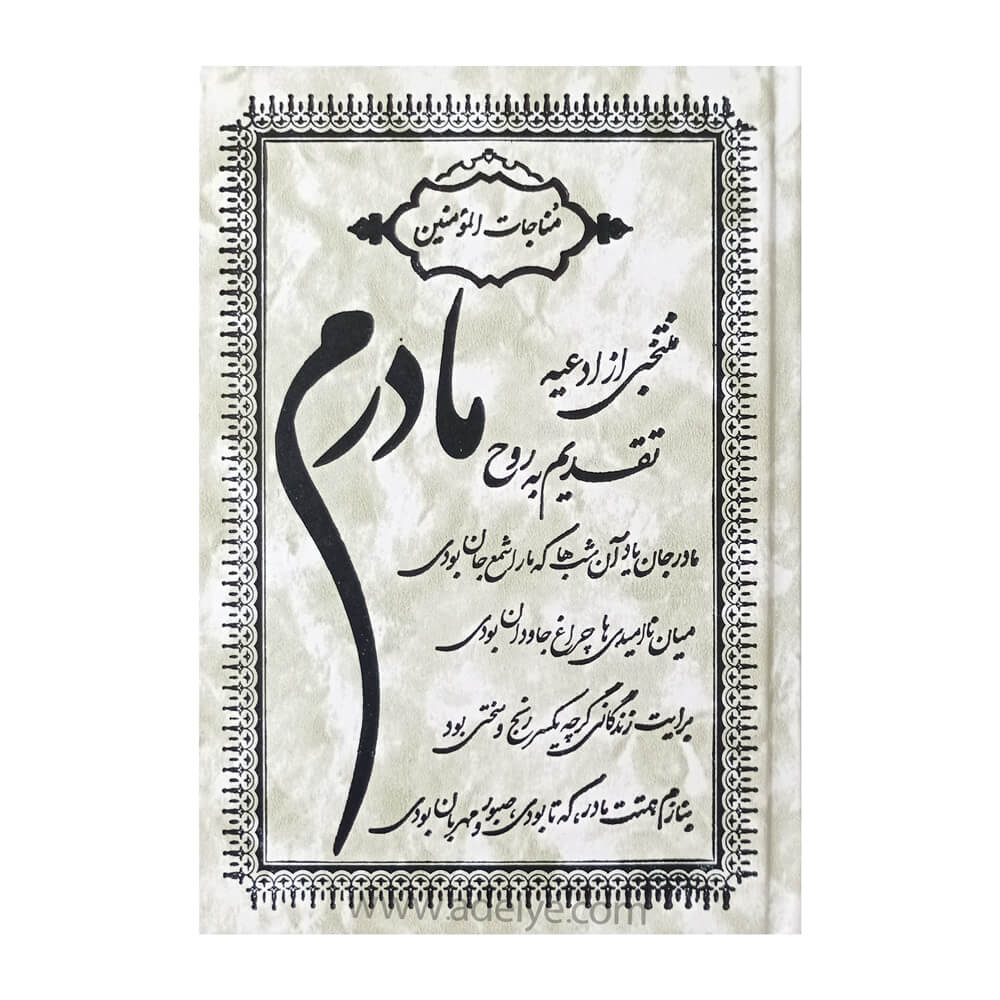 مُناجات المؤمنین
منتخبی از ادعیه
تقدیم به روح
مادرم
مادر جان یاد آن شب‌ها که ما را شمع جان بودی
میان ناامیدی‌ها چراغ جاودان بودی
برایت زندگانی گرچه یکسر رنج و سختی بود
بنازم همتت مادر، که تا بودی، صبور و مهربان بودی
www.adelye.com